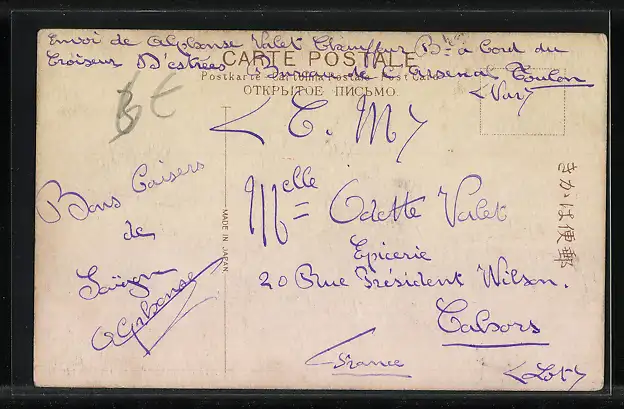 Envoi de Alphonse Valet Chauffeur Bté à bord du
Croiseur D'estrées Bureau de l'Arsenal Toulon
<Var>
CARTE POSTALE
Postkarte Post Card
ОТКРЫТОЕ ПИСЬМО
<C. M>
BE
Bons Baisers
de
Saïgon
Alphonse
MADE IN JAPAN
Melle Odette Valet
Epicerie
20 Rue Président Wilson.
Cahors
France
<Lot>
きかは便郵